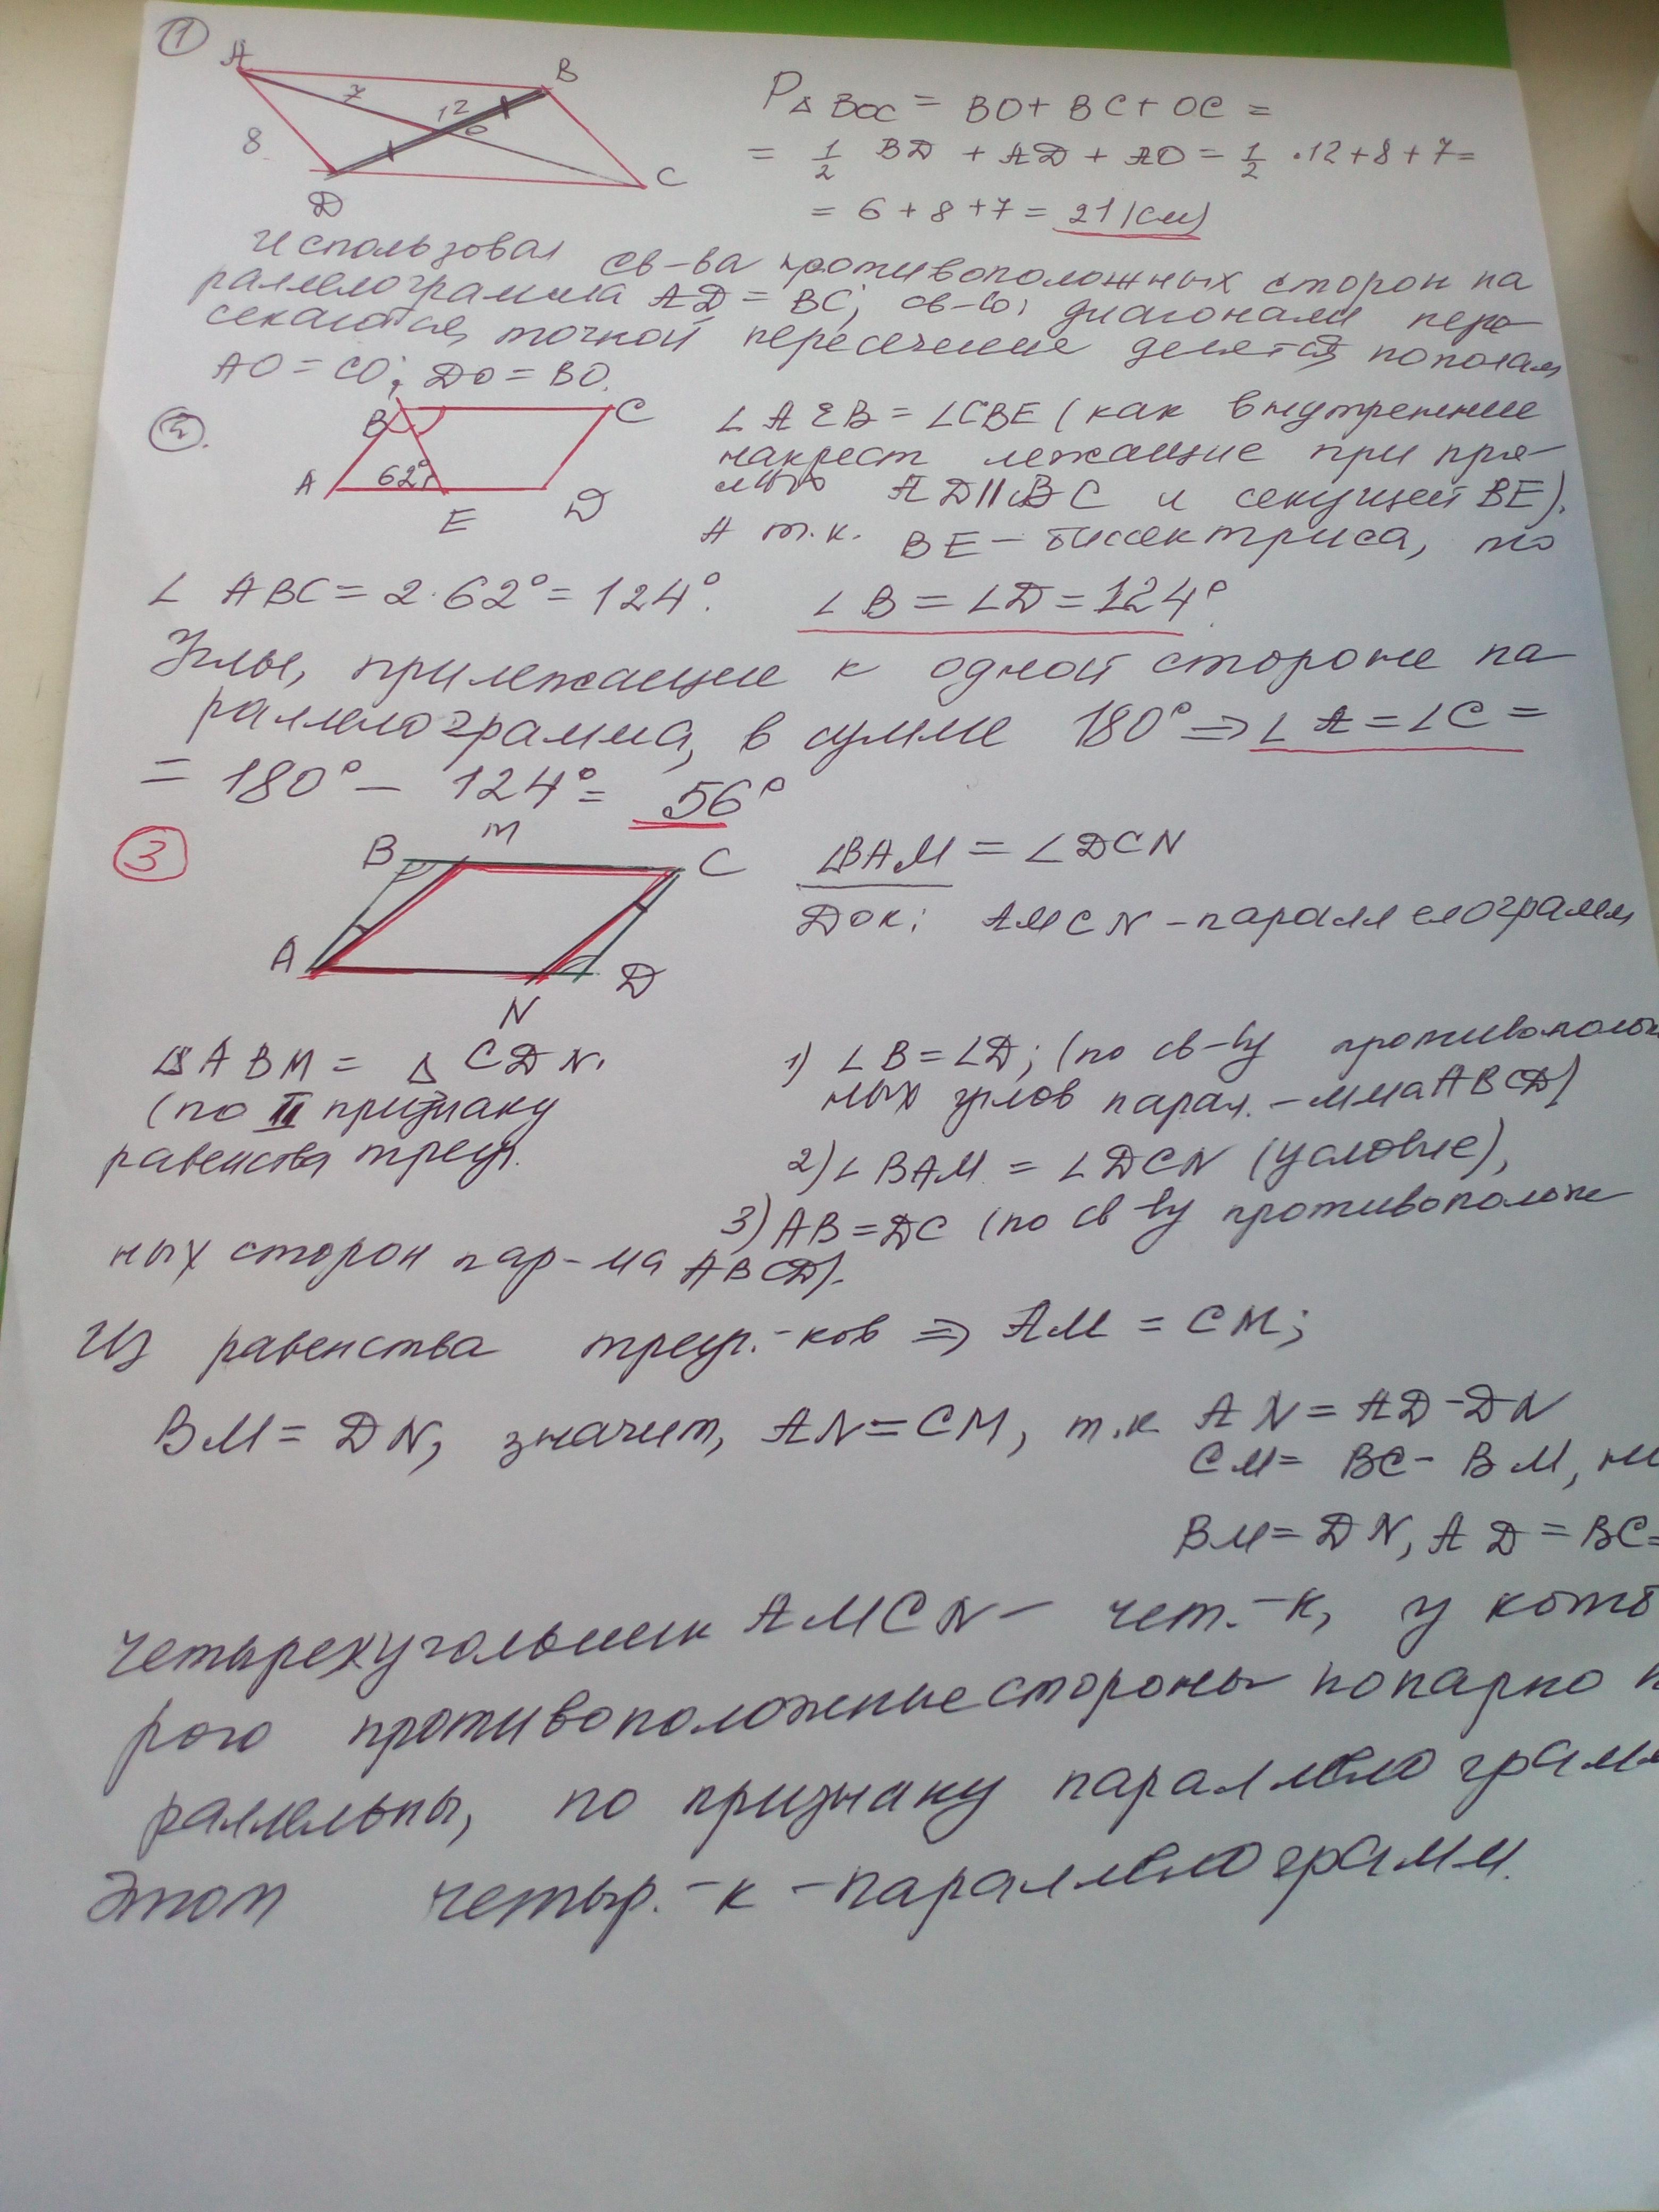 1
A
B
7
12
8
O
D
C
P△BOC = BO + BC + OC =
= 1/2 BD + AD + AO = 1/2 · 12 + 8 + 7 =
= 6 + 8 + 7 = 21 (см)
Использовал св-ва противоположных сторон па
раллелограмма AD = BC; св-во, диагонали пере
секаются, точкой пересечение делятся пополам
AO = CO; DO = BO.
2.
B
C
A
62°
E
D
∠ AEB = ∠CBE (как внутренние
накрест лежащие при пря-
мых AD || BC и секущей BE).
А т.к. BE – биссектриса, то
∠ ABC = 2·62° = 124°. ∠ B = ∠D = 124°.
Углы, прилежащие к одной стороне па
раллелограмма, в сумме 180° ⇒ ∠ A = ∠C =
= 180° – 124° = 56°
3
B
M
C
A
N
D
∠BAM = ∠DCN
Док: AMCN – параллелограмм
△ABM = △ CDN.
(по II признаку
равенства треуг.
1) ∠B = ∠D; (по св-ву противополож
ных углов парал. – мма ABCD)
2) ∠ BAM = ∠ DCN (условие),
3) AB = DC (по св-ву противополож
ных сторон пар-ма ABCD).
Из равенства треуг.-ков ⇒ AM = CM;
BM = DN, значит, AN = CM, т.к AN = AD – DN
CM = BC – BM,
BM = DN, AD = BC =
Четырехугольник AMCN – чет.-к, у кото
рого противоположные стороны попарно п
раллельны, по признаку параллелограмм
Этот четыр.-к – параллелограмм.